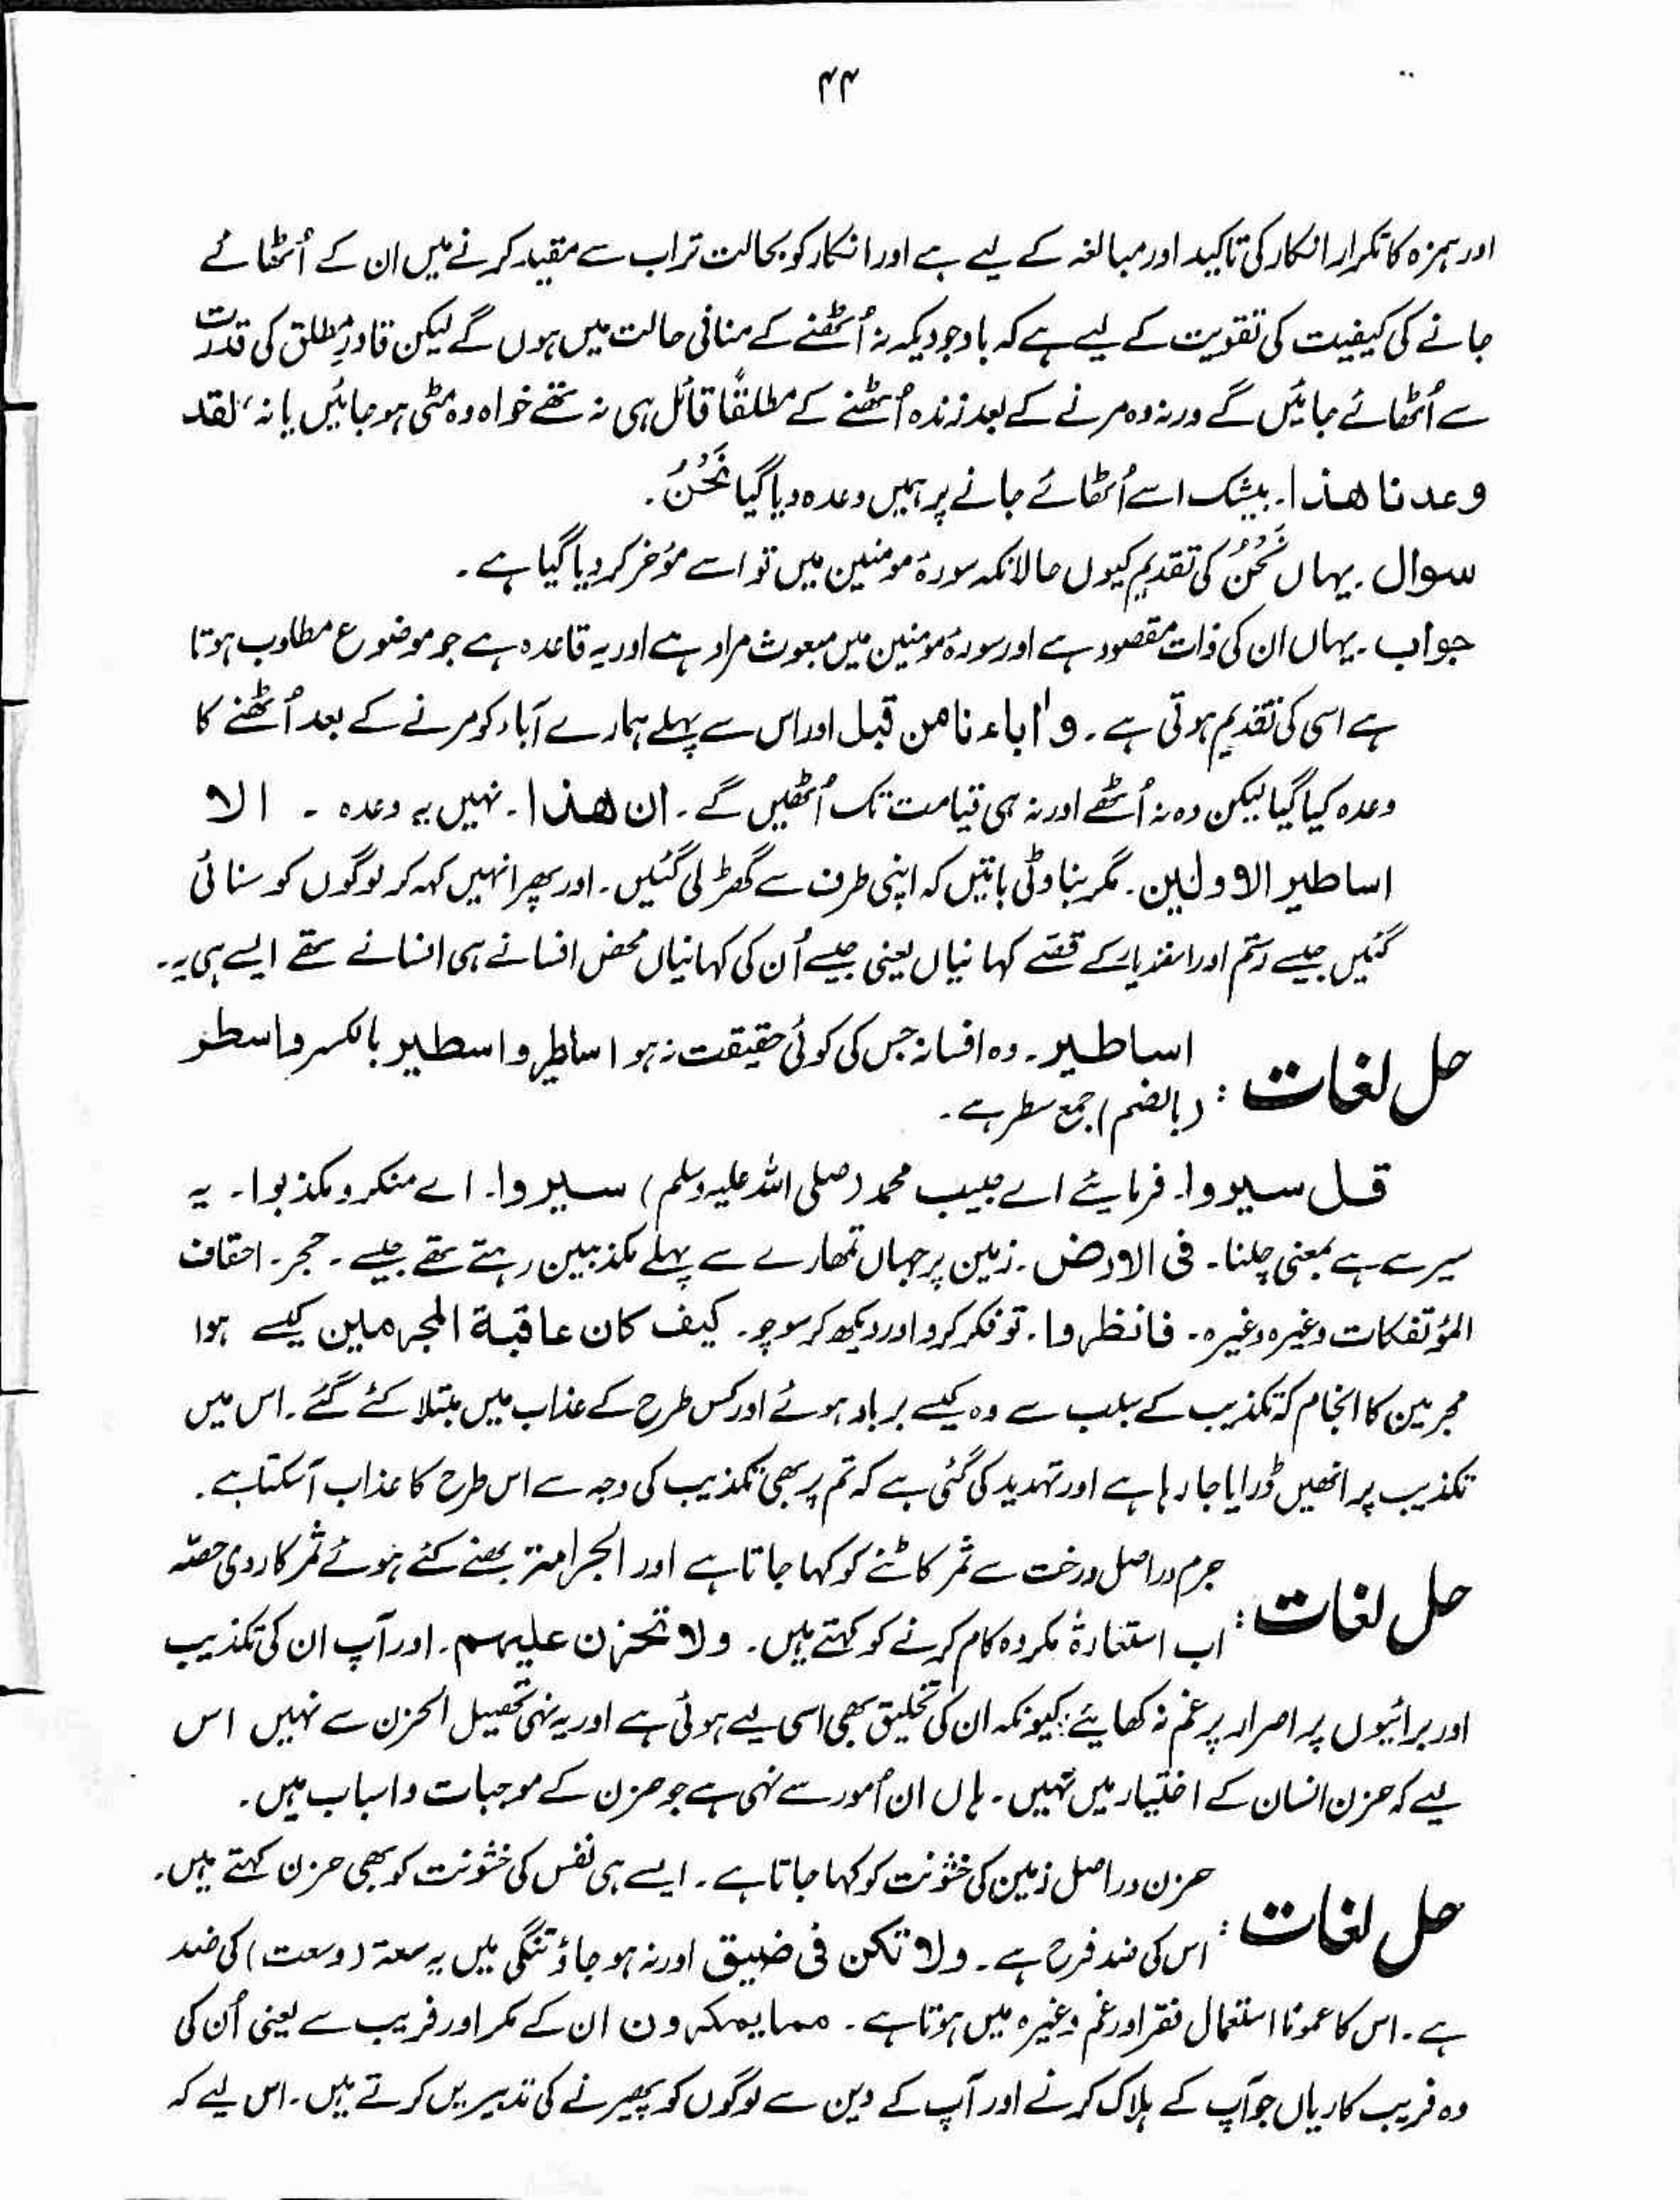 ۴۴
اور ہمزہ کا تکرار انکار کی تاکید اور مبالغہ کے لیے ہے اور انکار کو بحالت تراب سے مقید کرنے میں ان کے اُٹھائے
جانے کی کیفیت کی تقویت کے لیے ہے کہ باوجودیکہ نہ اُٹھنے کے منافی حالت میں ہوں گے لیکن قادرِ مطلق کی قدرت
سے اُٹھائے جائیں گے ورنہ وہ مرنے کے بعد زندہ اُٹھنے کے مطلقًا قائل ہی نہ تھے خواہ وہ مٹی ہو جائیں یا نہ، لقد
وعدنا ھذا۔ بیشک اسے اُٹھائے جانے پر ہمیں وعدہ دیا گیا نَحْنُ۔
سوال۔ یہاں نَحْنُ کی تقدیم کیوں حالانکہ سورۂ مومنین میں تو اسے مؤخر کر دیا گیا ہے۔
جواب۔ یہاں ان کی ذات مقصود ہے اور سورۂ مومنین میں مبعوث مراد ہے اور یہ قاعدہ ہے جو موضوع مطلوب ہوتا
ہے اسی کی تقدیم ہوتی ہے۔ و اٰباءنا من قبل اور اس سے پہلے ہمارے آباء کو مرنے کے بعد اُٹھنے کا
وعدہ کیا گیا لیکن وہ نہ اُٹھے اور نہ ہی قیامت تک اُٹھیں گے۔ ان ھذا۔ نہیں یہ وعدہ ۔ الا
اساطیر الاولین۔ مگر بناوٹی باتیں کہ اپنی طرف سے گھڑ لی گئیں۔ اور پھر انہیں کہہ کر لوگوں کو سنائی
گئیں جیسے رستم اور اسفندیار کے قصے کہانیاں یعنی جیسے اُن کی کہانیاں محض افسانے ہی افسانے تھے ایسے ہی یہ۔
حل لغات : اساطیر۔ وہ افسانہ جس کی کوئی حقیقت نہ ہو اساطیر و اسطیر بالکسر و اسطر
(بالضم) جمع سطر ہے۔
قل سیروا۔ فرمایئے اے حبیب محمد (صلی اللہ علیہ وسلم) سیروا۔ اے منکرو مکذبوا۔ یہ
سیر سے ہے بمعنی چلنا۔ فی الارض۔ زمین پر جہاں تمھارے سے پہلے مکذبین رہتے تھے جیسے۔ حجر۔ احقاف
المؤتفکات وغیرہ وغیرہ۔ فانظروا۔ تو فکر کرو اور دیکھ کر سوچو۔ کیف کان عاقبة المجرمین کیسے ہوا
مجرمین کا انجام کہ تکذیب کے سبب سے وہ کیسے برباد ہوئے اور کس طرح کے عذاب میں مبتلا کئے گئے۔ اس میں
تکذیب پر انھیں ڈرایا جا رہا ہے اور تہدید کی گئی ہے کہ تم پر بھی تکذیب کی وجہ سے اس طرح کا عذاب آ سکتا ہے۔
حل لغات : جرم دراصل درخت سے ثمر کاٹنے کو کہا جاتا ہے اور الجرامتہ بمعنے کٹے ہوئے ثمر کا ردی حصّہ
اب استعارۃً مکروہ کام کرنے کو کہتے ہیں۔ ولا تحزن علیہم۔ اور آپ ان کی تکذیب
اور برائیوں پر اصرار پر غم نہ کھایئے کیونکہ ان کی تخلیق بھی اسی لیے ہوئی ہے اور یہ نہی تحصیل الحزن سے نہیں اس
لیے کہ حزن انسان کے اختیار میں نہیں۔ ہاں ان اُمور سے نہی ہے جو حزن کے موجبات و اسباب ہیں۔
حل لغات : حزن دراصل زمین کی خشونت کو کہا جاتا ہے۔ ایسے ہی نفس کی خشونت کو بھی حزن کہتے ہیں۔
اس کی ضد فرح ہے۔ ولا تکن فی ضیق اور نہ ہو جاؤ تنگی میں یہ سعۃ (وسعت) کی ضد
ہے۔ اس کا عمومًا استعمال فقر اور غم وغیرہ میں ہوتا ہے۔ مما یمکرون ان کے مکر اور فریب سے یعنی اُن کی
وہ فریب کاریاں جو آپ کے ہلاک کرنے اور آپ کے دین سے لوگوں کو پھیرنے کی تدبیریں کرتے ہیں۔ اس لیے کہ